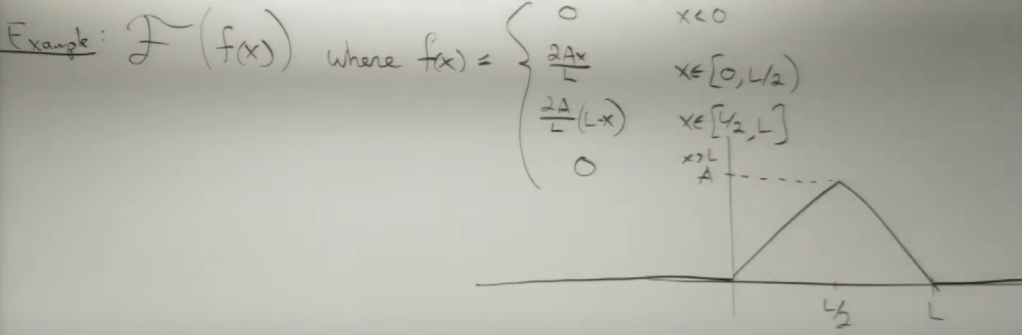 Example: F(f(x)) where f(x) = { 0 x<0
2Ax/L x∈[0, L/2)
2A/L (L-x) x∈[L/2, L]
0 x>L
A
L/2 L